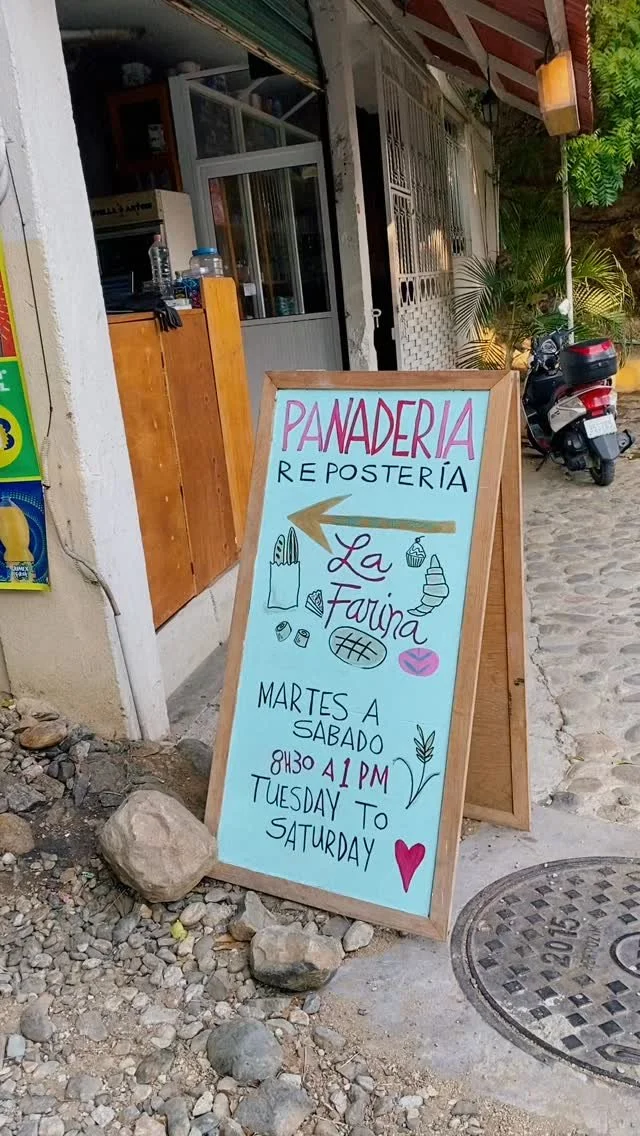 PANADERIA
REPOSTERÍA
La
Farina
MARTES A
SABADO
8H30 A 1 PM
TUESDAY TO
SATURDAY
2015